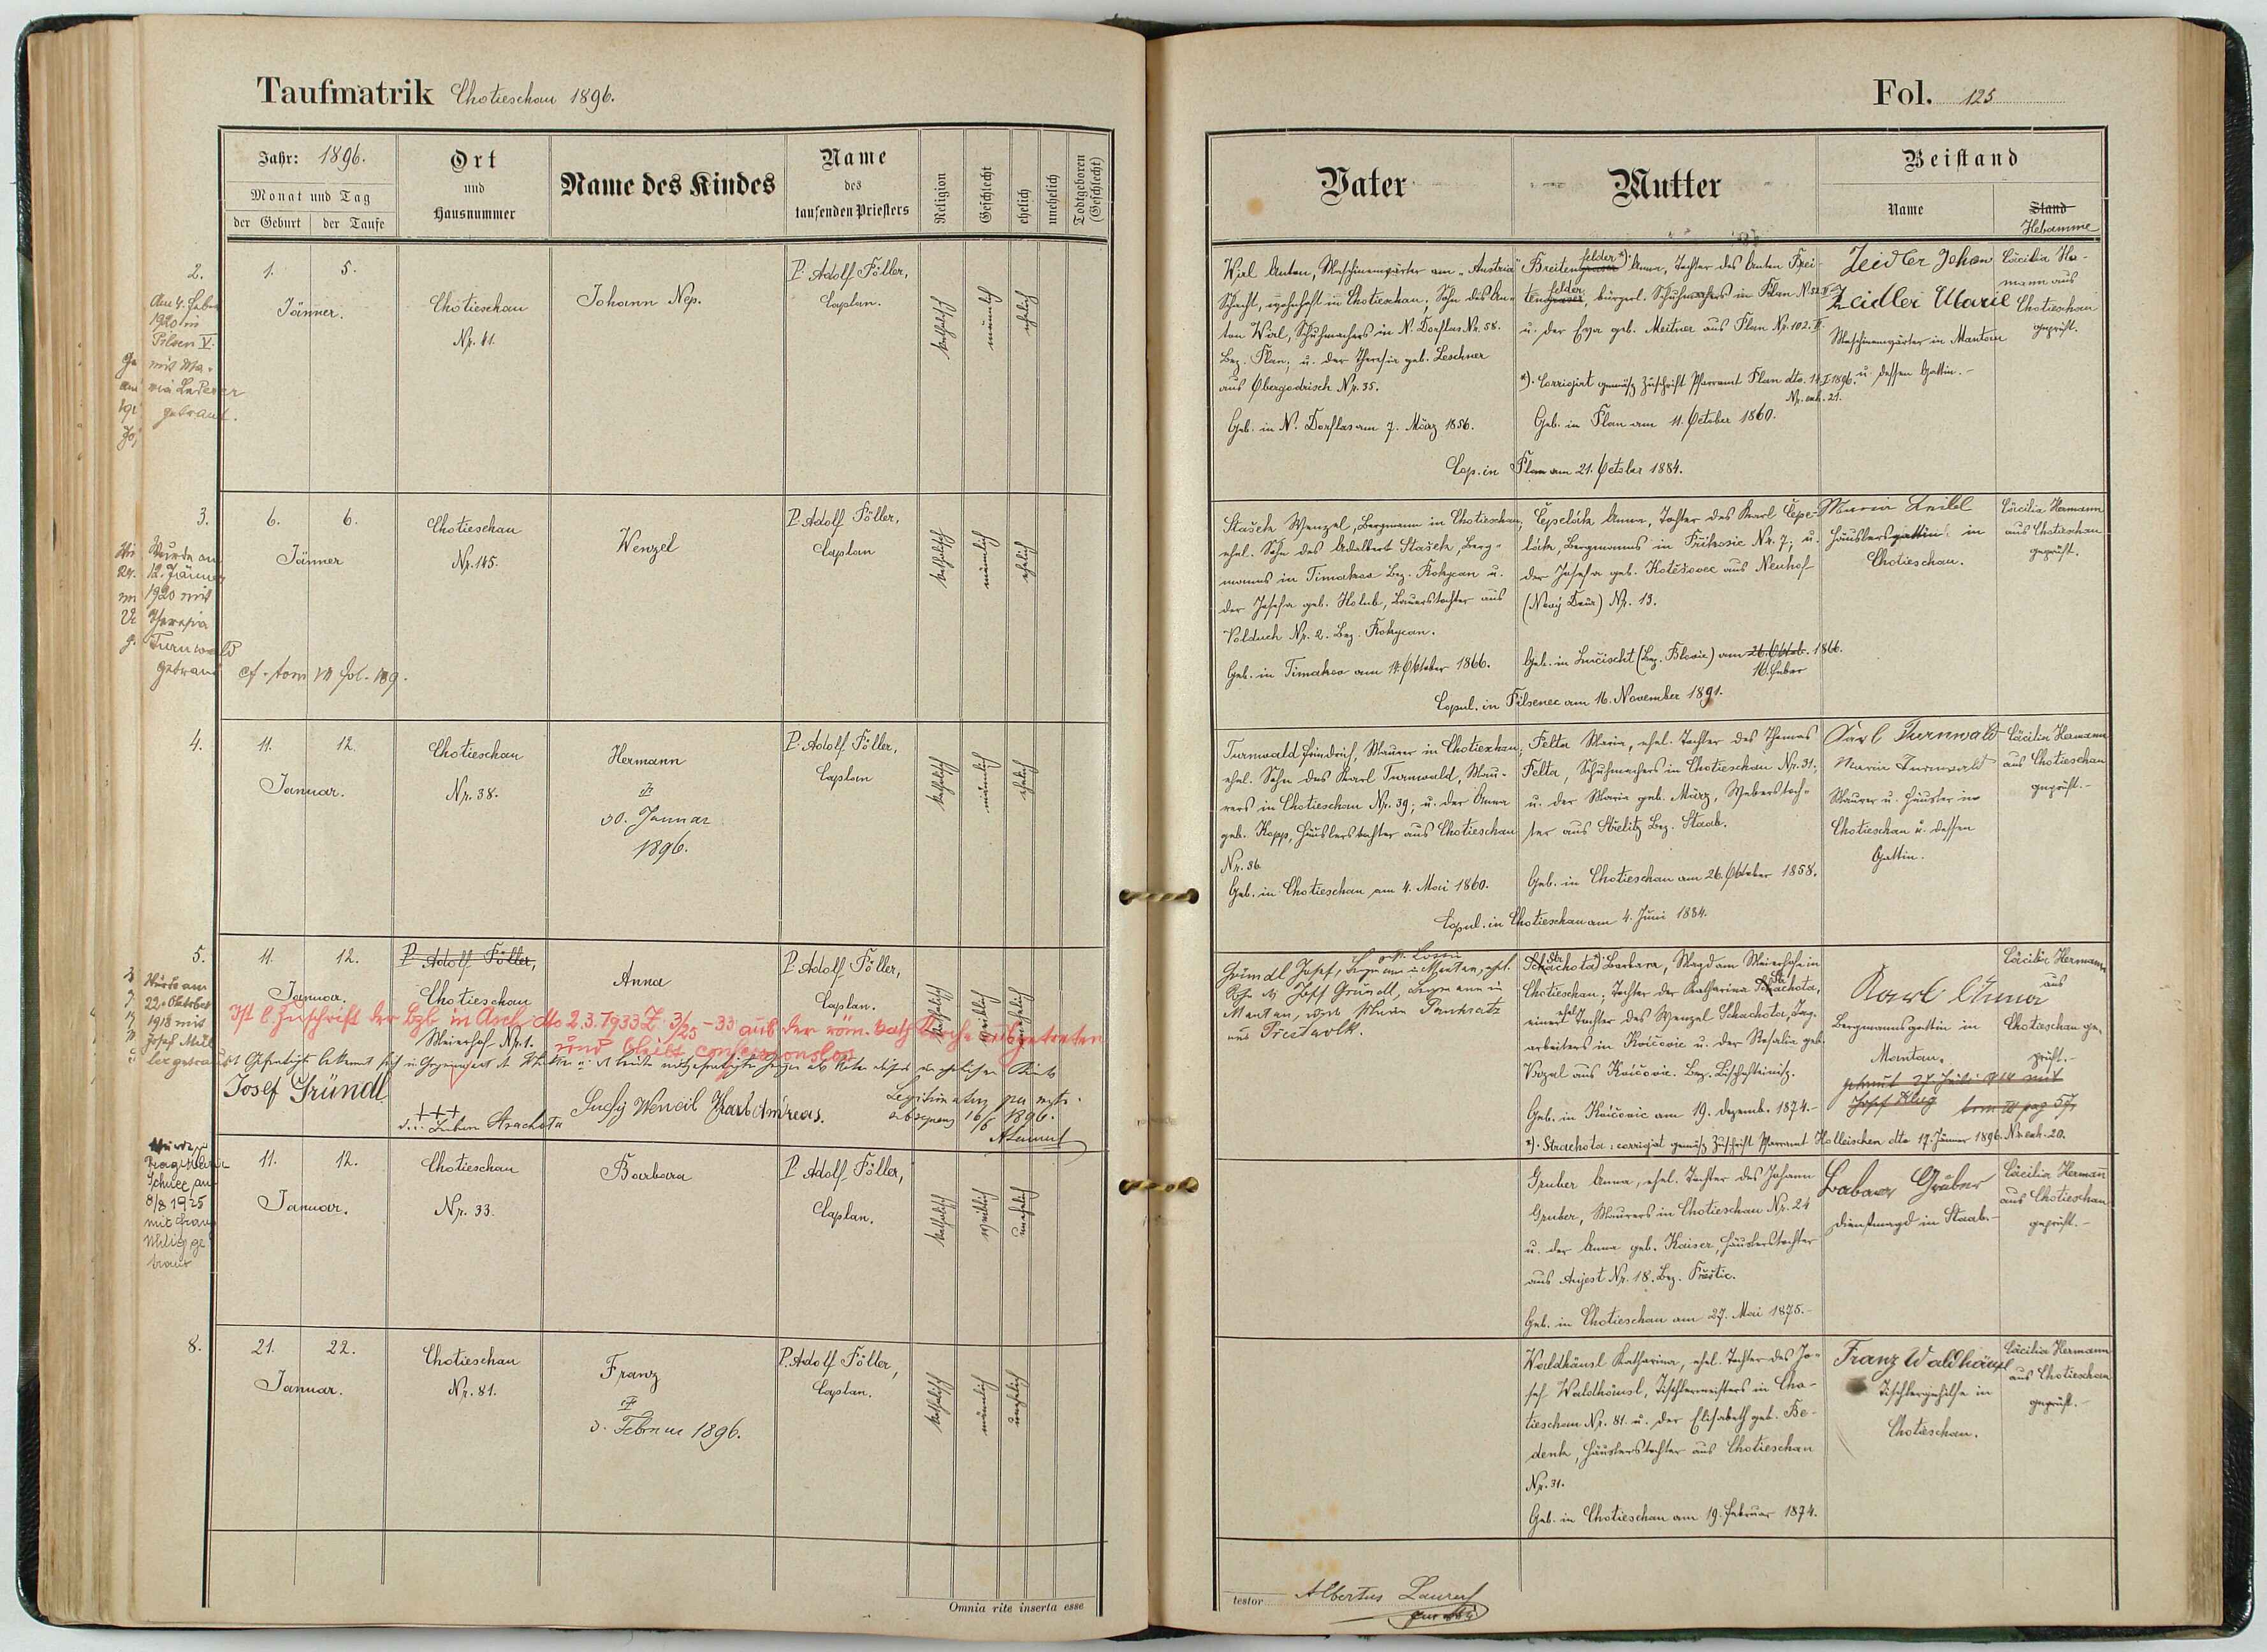 Taufmatrik Chotieschau 1896.
Jahr: 1896.
Monat und Tag
der Geburt
der Taufe
Ort
und
Hausnummer
Name des Kindes
Name
des
taufenden Priesters
Religion
Geschlecht
ehelich
unehelich
Todtgeboren
(Geschlecht)
2.
1. 5.
Jänner.
Chotieschau
Nr. 81.
Johann Nep.
P. Adolf Föller,
Caplan.
katholisch
männlich
ehelich
Am 4. Feber
1920 in
Pilsen V.
mit Ma-
ria Lederer
getraut.
3.
6. 6.
Jänner
Chotieschau
Nr. 145.
Wenzel
P. Adolf Föller,
Caplan
katholisch
männlich
ehelich
Wurde am
12. Jänner
1920 mit
Theresia
Turnwald
getraut
4.
11. 12.
Januar.
Chotieschau
Nr. 38.
Hermann
30. Januar
1896.
P. Adolf Föller,
Caplan
katholisch
männlich
ehelich
5.
11. 12.
Januar.
P. Adolf Föller,
Chotieschau
Meierhof Nr. 1.
Anna
P. Adolf Föller,
Caplan.
katholisch
weiblich
unehelich
Wurde am
22. Oktober
1918 mit
Josef
getraut
Ist l. Zuschrift der Bzb in Asch dto 2.3.1933 Z. 3/25-33 aus der röm. kath Kirche ausgetreten
und bleibt confessionslos
Josef Gründl
+++
Andreas.
1896.
11. 12.
Januar.
Chotieschau
Nr. 33.
Barbara
P. Adolf Föller,
Caplan.
katholisch
weiblich
unehelich
8/8 1925
mit Franz
8.
21. 22.
Januar.
Chotieschau
Nr. 81.
Franz
3. Februar 1896.
P. Adolf Föller,
Caplan.
katholisch
männlich
unehelich
Omnia rite inserta esse
Fol. 125
Vater
Mutter
Beistand
Name
Stand
Hebamme
Wirl Anton, Maschinenwärter am "Austria"
Schacht, wohnhaft in Chotieschau; Sohn des An-
ton Wirl, Schuhmachers in N. Dorflas Nr. 58.
Bez. Plan, u. der Theresia geb. Leschner
aus Obergodrisch Nr. 35.
Geb. in N. Dorflas am 7. März 1856.
felder
Breitengraser *) Anna, Tochter des Anton Brei-
felder
tengraser, bürgerl. Schuhmachers in Plan
u. der Eva geb. Meitner aus Plan Nr. 102. II.
*). Corrigirt gemäß Zuschrift Pfarramt Plan dto. 14. I. 1896.
Nr. exh. 21.
Geb. in Plan am 11. October 1860.
Cop. in Plan am 21. October 1884.
Zeidler Johann
Zeidler Marie
Maschinenwärter in Mantau
u. dessen Gattin.-
Cäcilia Her-
mann aus
Chotieschau
geprüft.
Stašek Wenzel, Bergmann in Chotieschau,
ehel. Sohn des Adalbert Stašek, Berg-
manns in Timakov Bez. Rokycan u.
der Josefa geb. Holub, Bauerstochter aus
Volduch Nr. 2. Bez. Rokycan.
Geb. in Timakov am 14. Oktober 1866.
Čepelák Anna, Tochter des Karl Čepe-
lák, Bergmanns in Příkosic Nr. 7; u.
der Josefa geb. Kotěšovec aus Neuhof
(Nový Dvůr) Nr. 13.
Geb. in Lučischt (Bez. Blovic) am 26. Oktob. 1866.
16. Feber
Copul. in Pilsenec am 16. November 1891.
Maria Leibl
Häuslersgattin in
Chotieschau.
Cäcilia Hermann
aus Chotieschau
geprüft.
Turnwald Friedrich, Maurer in Chotieschau;
ehel. Sohn des Karl Turnwald, Mau-
rers in Chotieschau Nr. 39; u. der Anna
geb. Kopp, Häuslerstochter aus Chotieschau
Nr. 36
Geb. in Chotieschau am 4. Mai 1860.
Felta Maria, ehel. Tochter des Thomas
Felta, Schuhmachers in Chotieschau Nr. 31;
u. der Maria geb. März, Weberstoch-
ter aus Stielitz Bez. Staab.
Geb. in Chotieschau am 26. Oktober 1858.
Copul. in Chotieschau am 4. Juni 1884.
Karl Turnwald
Maria Turnwald
Maurer u. Häusler in
Chotieschau u. dessen
Gattin.
Cäcilia Hermann
aus Chotieschau
geprüft.-
Gründl Josef, Bergmann in Mantau, ehel.
Sohn d. Josef Gründl, Bergmann in
Mantau, und Maria
aus Prestavlk.
Schachota *) Barbara, Magd am Meierhofe in
Chotieschau; Tochter der Katharina Schachota,
einer ehel. Tochter des Wenzel Schachota, Tag-
arbeiters in Kvíčovic u. der Rosalia geb.
Vozal aus Kvíčovic. Bez. Bischofteinitz.
Geb. in Kvíčovic am 19. Dezemb. 1874.-
*). Strachota: corrigirt gemäß Zuschrift Pfarramt Holleischen dto 17. Jänner 1896. Nr. exh. 20.
Karl Anna
Bergmannsgattin in
Mantau.
Cäcilia Hermann
aus
Chotieschau ge-
prüft.-
Gruber Anna, ehel. Tochter des Johann
Gruber, Maurers in Chotieschau Nr. 24
u. der Anna geb. Kaiser, Häuslerstochter
aus Aujest Nr. 18. Bez. Přestic.
Geb. in Chotieschau am 27. Mai 1875.-
Babara Gruber
Dienstmagd in Staab.-
Cäcilia Hermann
aus Chotieschau
geprüft.-
Waldhäusl Katharina, ehel. Tochter des Jo-
sef Waldhäusl, Tischlermeisters in Cho-
tieschau Nr. 81. u. der Elisabeth geb. Be-
denk, Häuslerstochter aus Chotieschau
Nr. 31.
Geb. in Chotieschau am 19. Februar 1874.
Franz Waldhäusl
Tischlergehilfe in
Chotieschau.
Cäcilia Hermann
aus Chotieschau
geprüft.-
testor Albertus